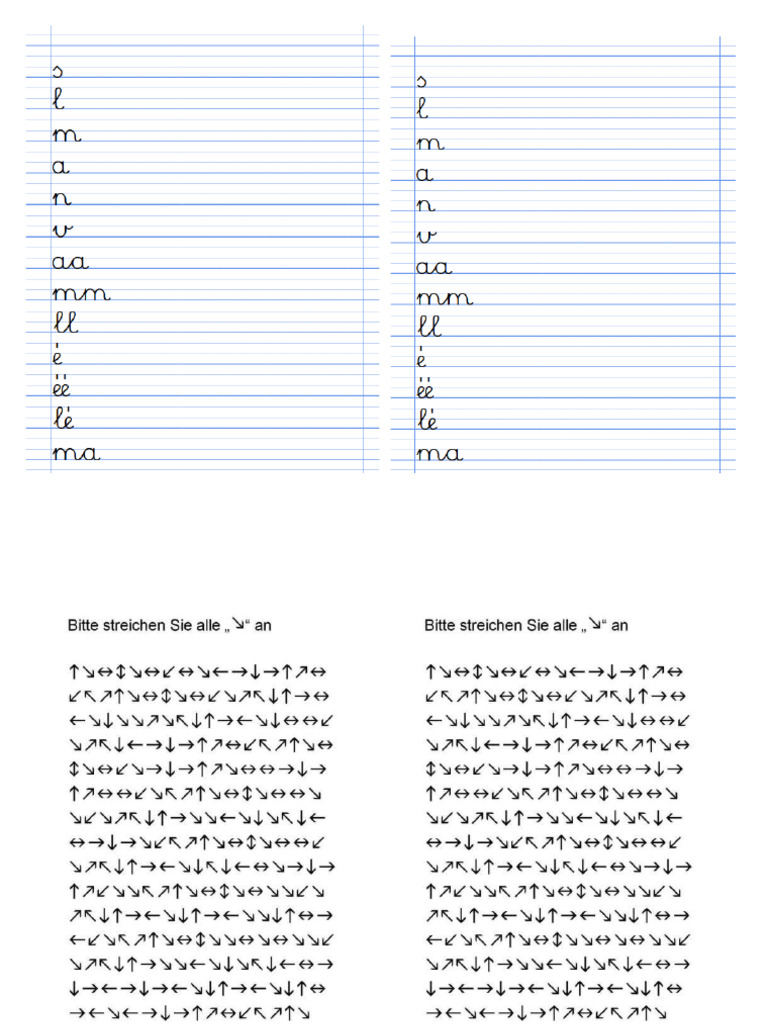 s
l
m
a
n
v
aa
mm
ll
ė
ėė
lė
ma
s
l
m
a
n
v
aa
mm
ll
ė
ėė
lė
ma
Bitte streichen Sie alle „↘“ an
↑↘↔↕↘↔↙↔↘←→↓→↑↗↔
↙↖↗↑↘↔↕↘↔↙↘↗↖↓↑→↔
←↘↓↘↘↗↘↖↓↑→←↘↓↔↔↙
↘↗↖↓←→↓→↑↗↔↙↖↗↑↘↔
↕↘↔↙↘→↓→↑↗↘↔↔→↓→
↑↗↔↔↙↘↖↗↑↘↔↕↘↔↔↘
↘↙↘↗↖↓↑→↘↘←↘↓↘↖↓←
↔→↓→↘↙↖↗↑↘↔↕↘↔↔↙
↘↗↖↓↑→←↘↓↖↓←↔↘→↓→
↑↗↙↘↘↖↗↑↘↔↕↘↔↘↘↙↘
↗↖↓↑→←↘↓↑→←↘↘↓↑↔→
←↙↘↖↗↑↘↔↕↘↘↔↘↔↘↘↙
↘↗↖↓↑→↘↘←↘↓↘↖↓←↔→
↓→←→↓→←↘↓↑→←↘↓↑↔
→←↘←↘→↓→↑↗↔↙↖↗↑↘
Bitte streichen Sie alle „↘“ an
↑↘↔↕↘↔↙↔↘←→↓→↑↗↔
↙↖↗↑↘↔↕↘↔↙↘↗↖↓↑→↔
←↘↓↘↘↗↘↖↓↑→←↘↓↔↔↙
↘↗↖↓←→↓→↑↗↔↙↖↗↑↘↔
↕↘↔↙↘→↓→↑↗↘↔↔→↓→
↑↗↔↔↙↘↖↗↑↘↔↕↘↔↔↘
↘↙↘↗↖↓↑→↘↘←↘↓↘↖↓←
↔→↓→↘↙↖↗↑↘↔↕↘↔↔↙
↘↗↖↓↑→←↘↓↖↓←↔↘→↓→
↑↗↙↘↘↖↗↑↘↔↕↘↔↘↘↙↘
↗↖↓↑→←↘↓↑→←↘↘↓↑↔→
←↙↘↖↗↑↘↔↕↘↘↔↘↔↘↘↙
↘↗↖↓↑→↘↘←↘↓↘↖↓←↔→
↓→←→↓→←↘↓↑→←↘↓↑↔
→←↘←↘→↓→↑↗↔↙↖↗↑↘